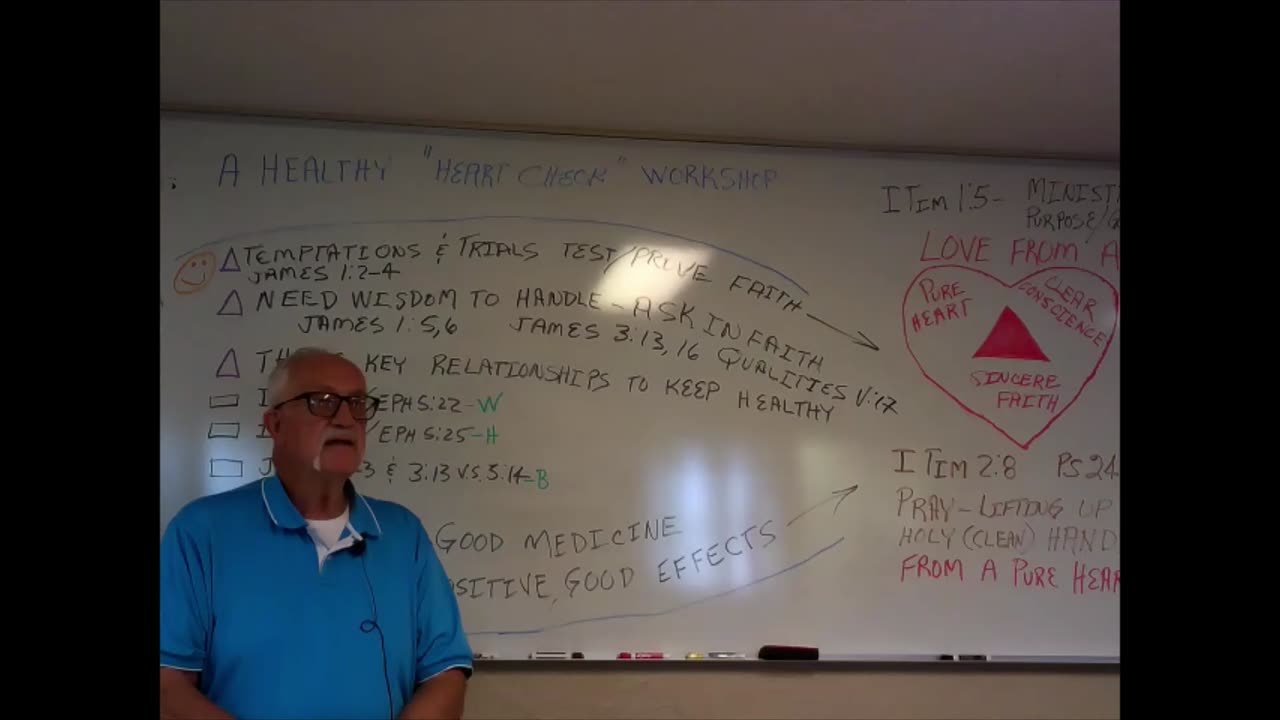 A HEALTHY "HEART CHECK" WORKSHOP
TEMPTATIONS & TRIALS TEST/PROVE FAITH
JAMES 1:2-4
NEED WISDOM TO HANDLE - ASK IN FAITH
JAMES 1:5,6 JAMES 3:13,16 QUALITIES V:17
KEY RELATIONSHIPS TO KEEP HEALTHY
/EPH 5:22-W
/EPH 5:25-H
3 & 3:13 V.S. 5:14=B
GOOD MEDICINE
OSITIVE, GOOD EFFECTS
I TIM 1:5- MINIST
PURPOSE/G
LOVE FROM A
PURE HEART
CLEAR CONSCIENCE
SINCERE FAITH
I TIM 2:8 PS 24
PRAY - LIFTING UP
HOLY (CLEAN) HAND
FROM A PURE HEAR